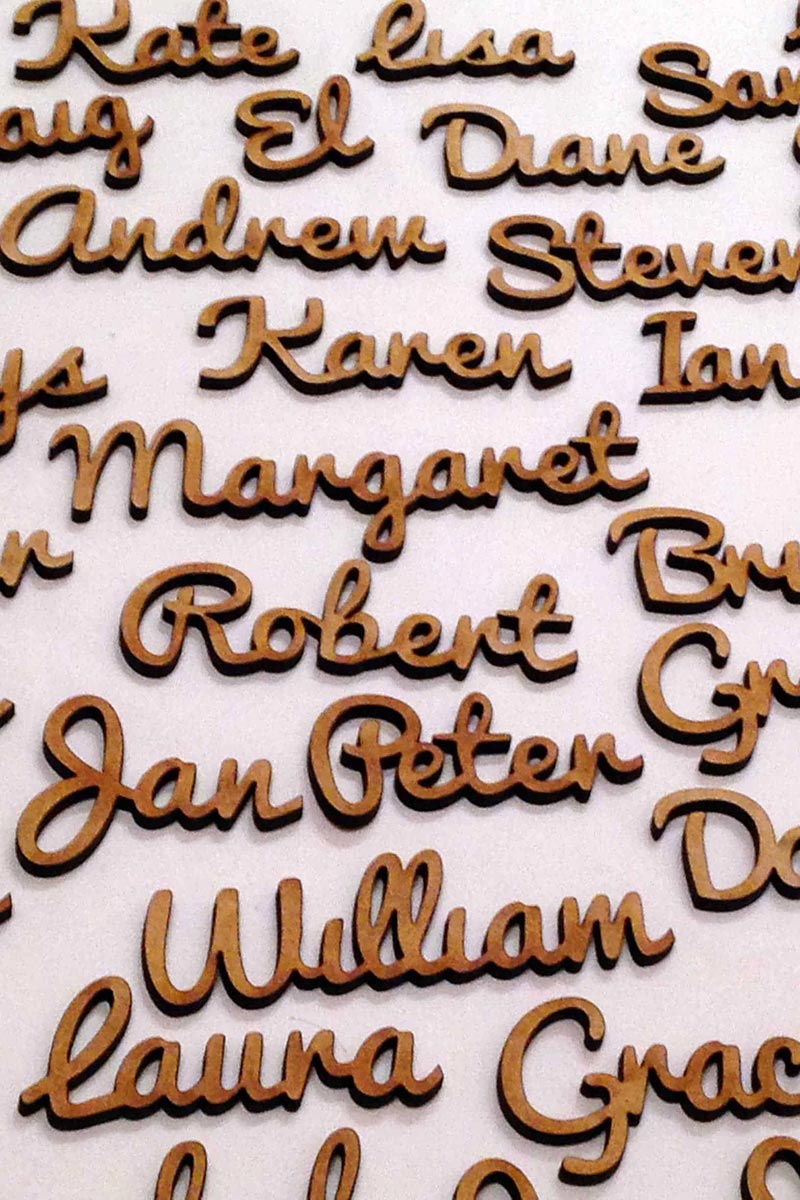 Kate lisa
El Diane
Andrew Steven
Karen Ian
Margaret
Robert
Jan Peter
William
laura Grac